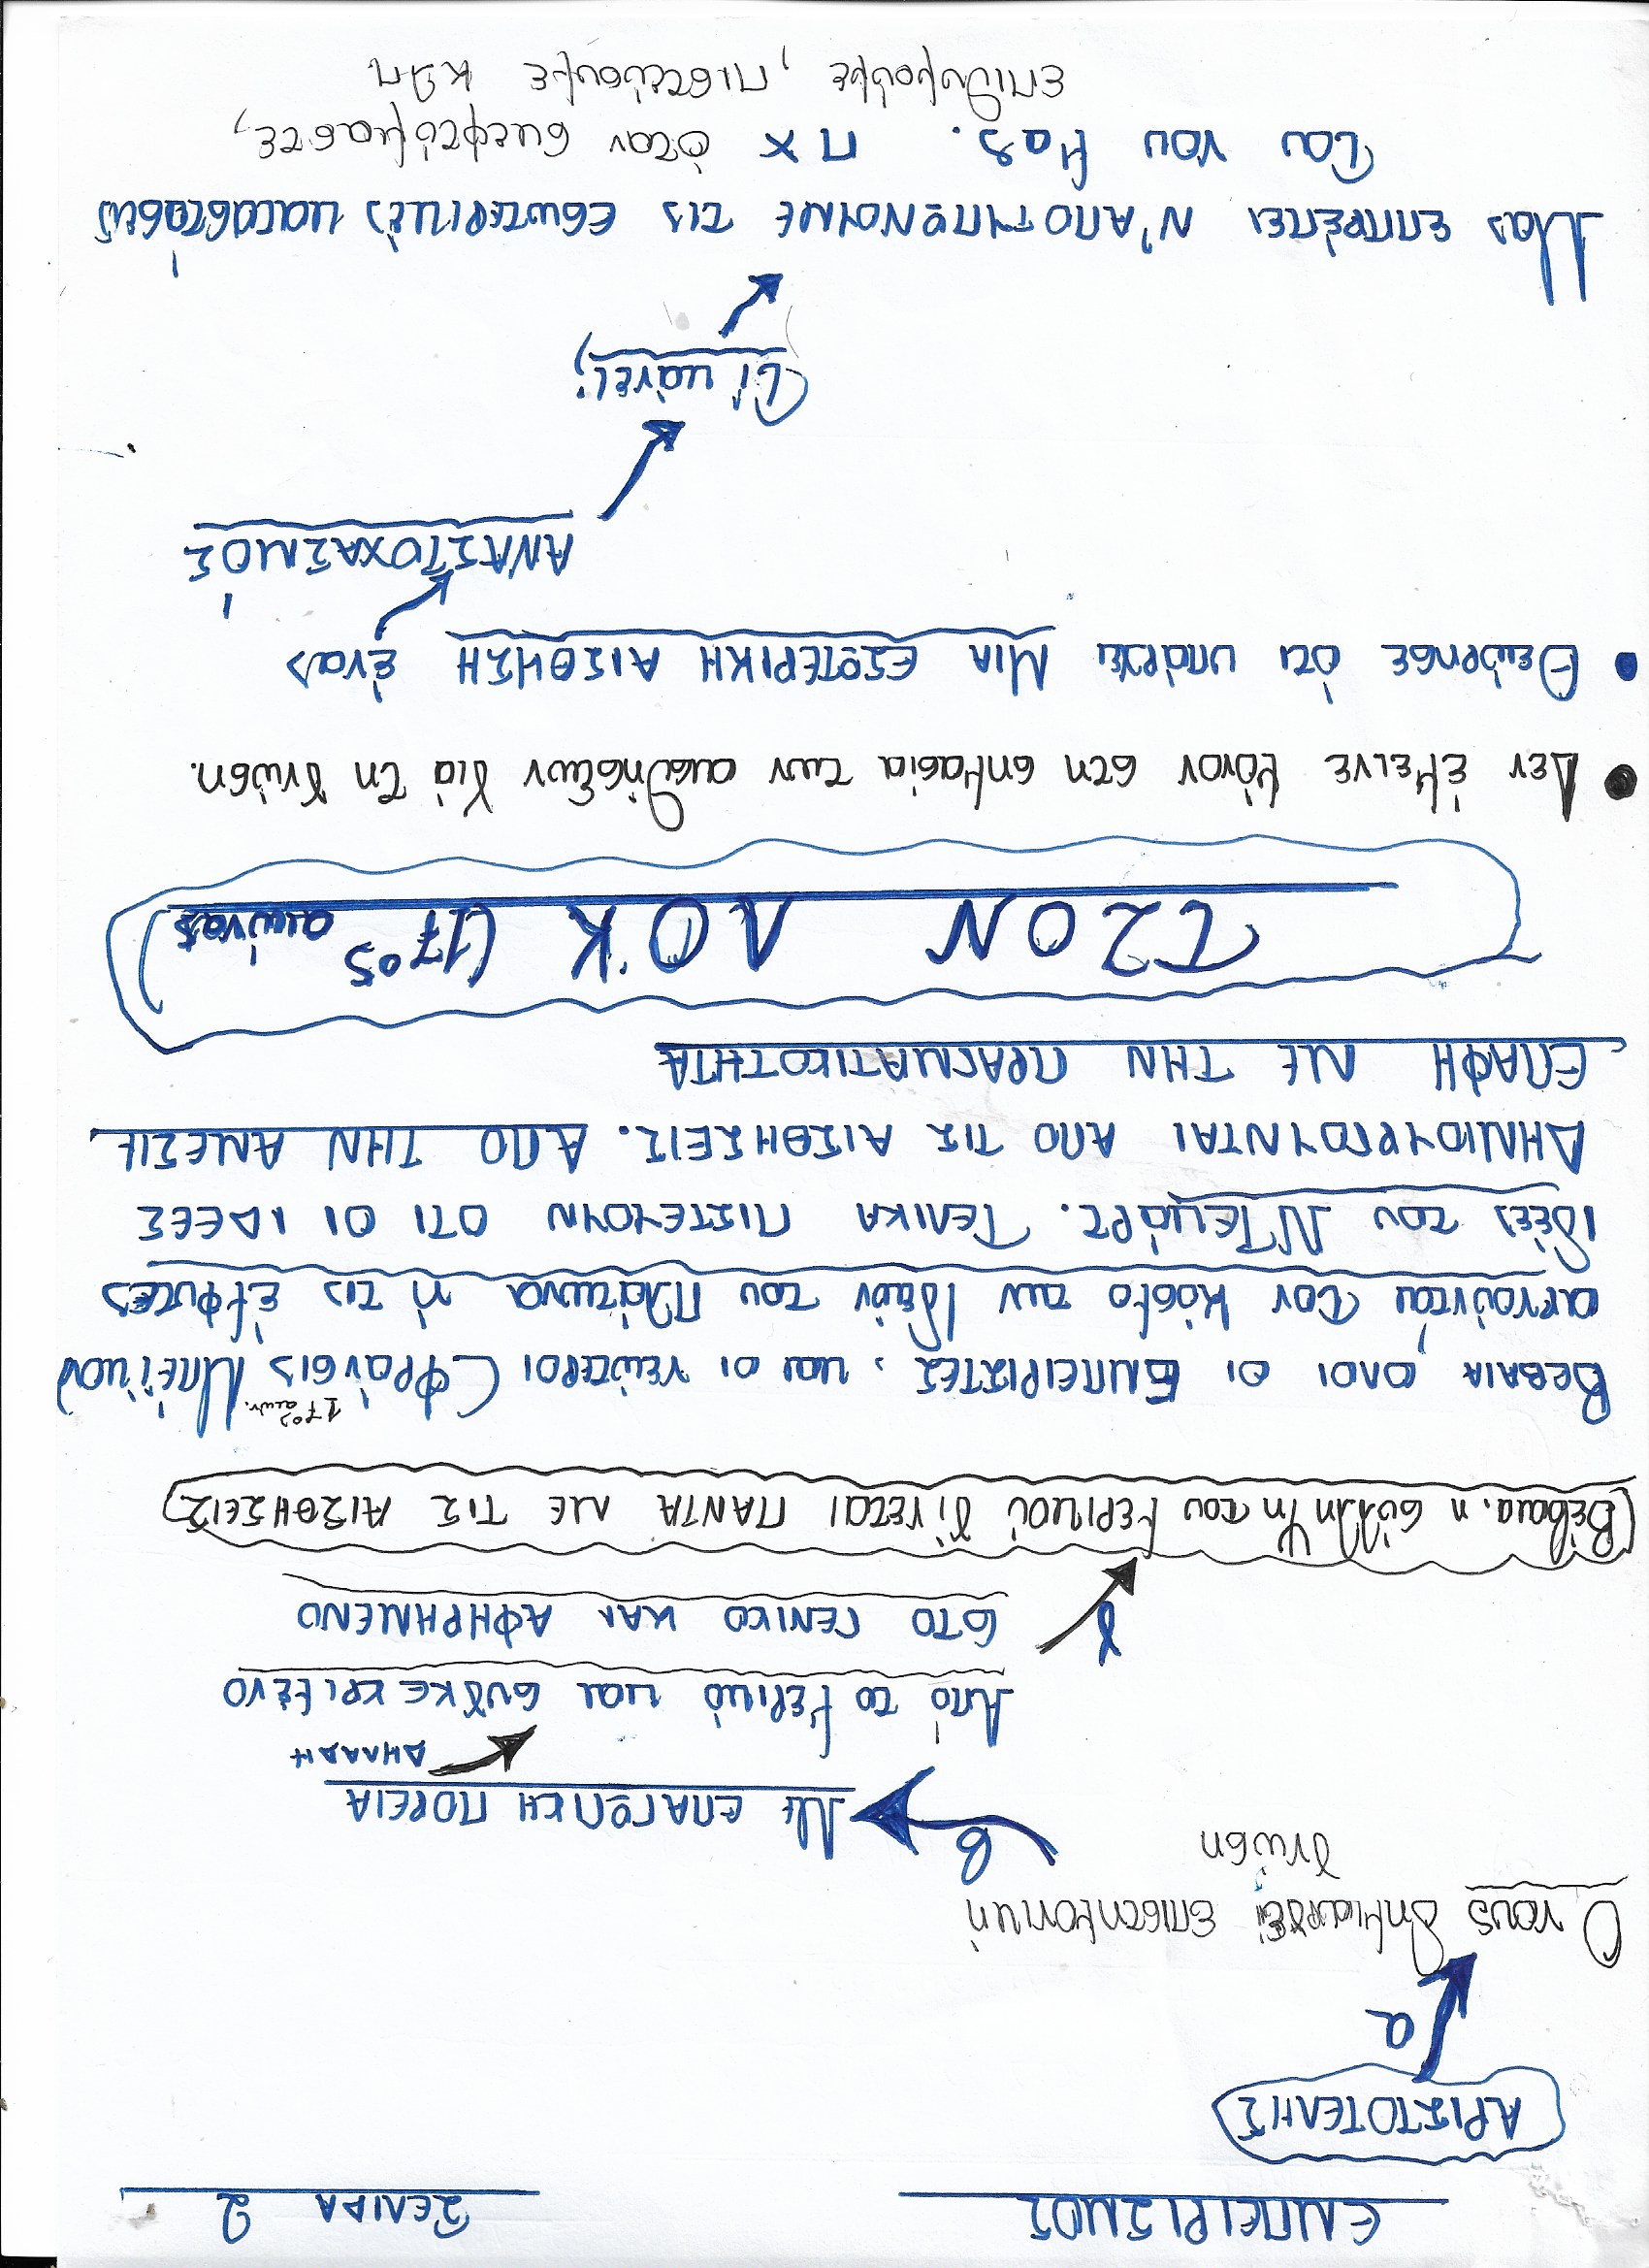 ΕΜΠΕΙΡΙΣΜΟΣ ΣΕΛΙΔΑ 2
ΑΡΙΣΤΟΤΕΛΗΣ
α
Ο νους δημιουργεί επιστημονική
γνώση
β Με ΕΠΑΓΩΓΙΚΗ ΠΟΡΕΙΑ
ΔΗΛΑΔΗ
Από το μερικό και συγκεκριμένο
στο ΓΕΝΙΚΟ ΚΑΙ ΑΦΗΡΗΜΕΝΟ
γ
(Βέβαια, η σύλληψη του μερικού γίνεται ΠΑΝΤΑ ΜΕ ΤΙΣ ΑΙΣΘΗΣΕΙΣ)
ΒΕΒΑΙΑ ΟΛΟΙ ΟΙ ΕΜΠΕΙΡΙΣΤΕΣ, και οι νεώτεροι (Φράνσις Μπέικον) 17ος αιων.
αρνούνται τον κόσμο των Ιδεών του Πλάτωνα ή τις έμφυτες
ιδέες του Ντεκάρτ. ΤΕΛΙΚΑ ΠΙΣΤΕΥΟΥΝ ΟΤΙ ΟΙ ΙΔΕΕΣ
ΔΗΜΙΟΥΡΓΟΥΝΤΑΙ ΑΠΟ ΤΙΣ ΑΙΣΘΗΣΕΙΣ. ΑΠΟ ΤΗΝ ΑΜΕΣΗ
ΕΠΑΦΗ ΜΕ ΤΗΝ ΠΡΑΓΜΑΤΙΚΟΤΗΤΑ
ΤΖΟΝ ΛΟΚ (17ος αιώνας)
• Δεν έμεινε μόνον στη σημασία των αισθήσεων γιά τη γνώση.
• Θεώρησε ότι υπάρχει ΜΙΑ ΕΣΩΤΕΡΙΚΗ ΑΙΣΘΗΣΗ ένας
ΑΝΑΣΤΟΧΑΣΜΟΣ
Τί κάνει;
Μας επιτρέπει Ν'ΑΠΟΤΥΠΩΝΟΥΜΕ τις εσωτερικές καταστάσεις
του νου μας. πχ όταν σκεφτόμαστε,
επιθυμούμε, πιστεύουμε κλπ